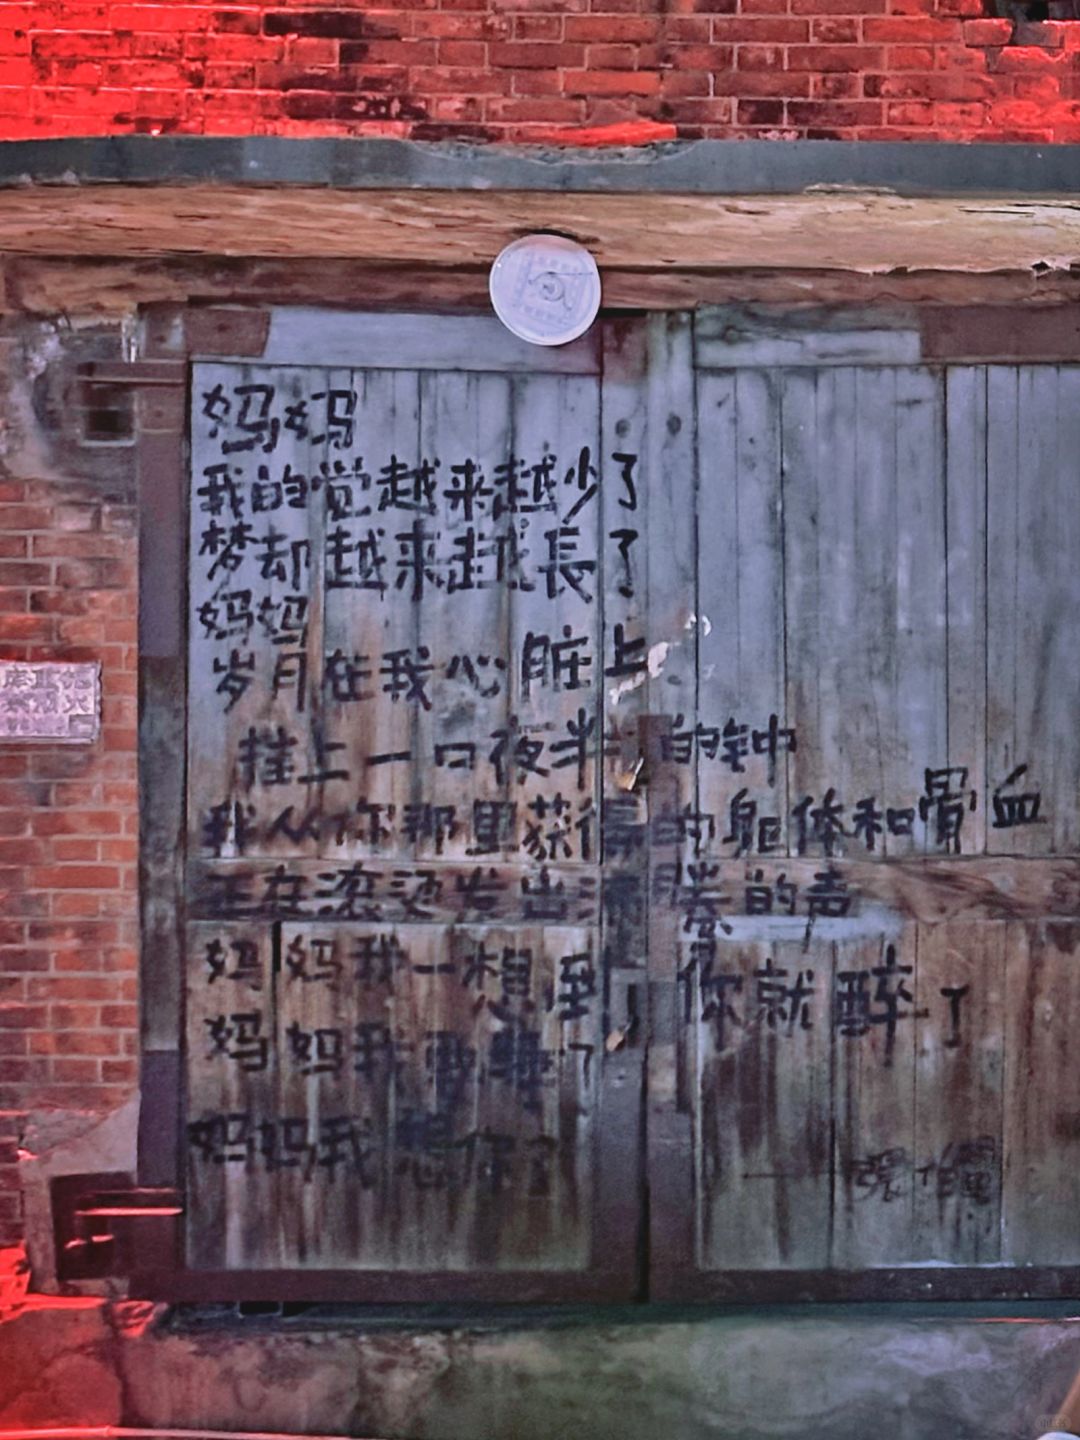 妈妈
我的觉越来越少了
梦却越来越長了
妈妈
岁月在我心脏上
挂上一口夜半的钟
我从你那里获得的躯体和骨血
正在滚烫发出沸腾的声
妈妈我一想到你就醉了
妈妈我要醉了
妈妈我想你了